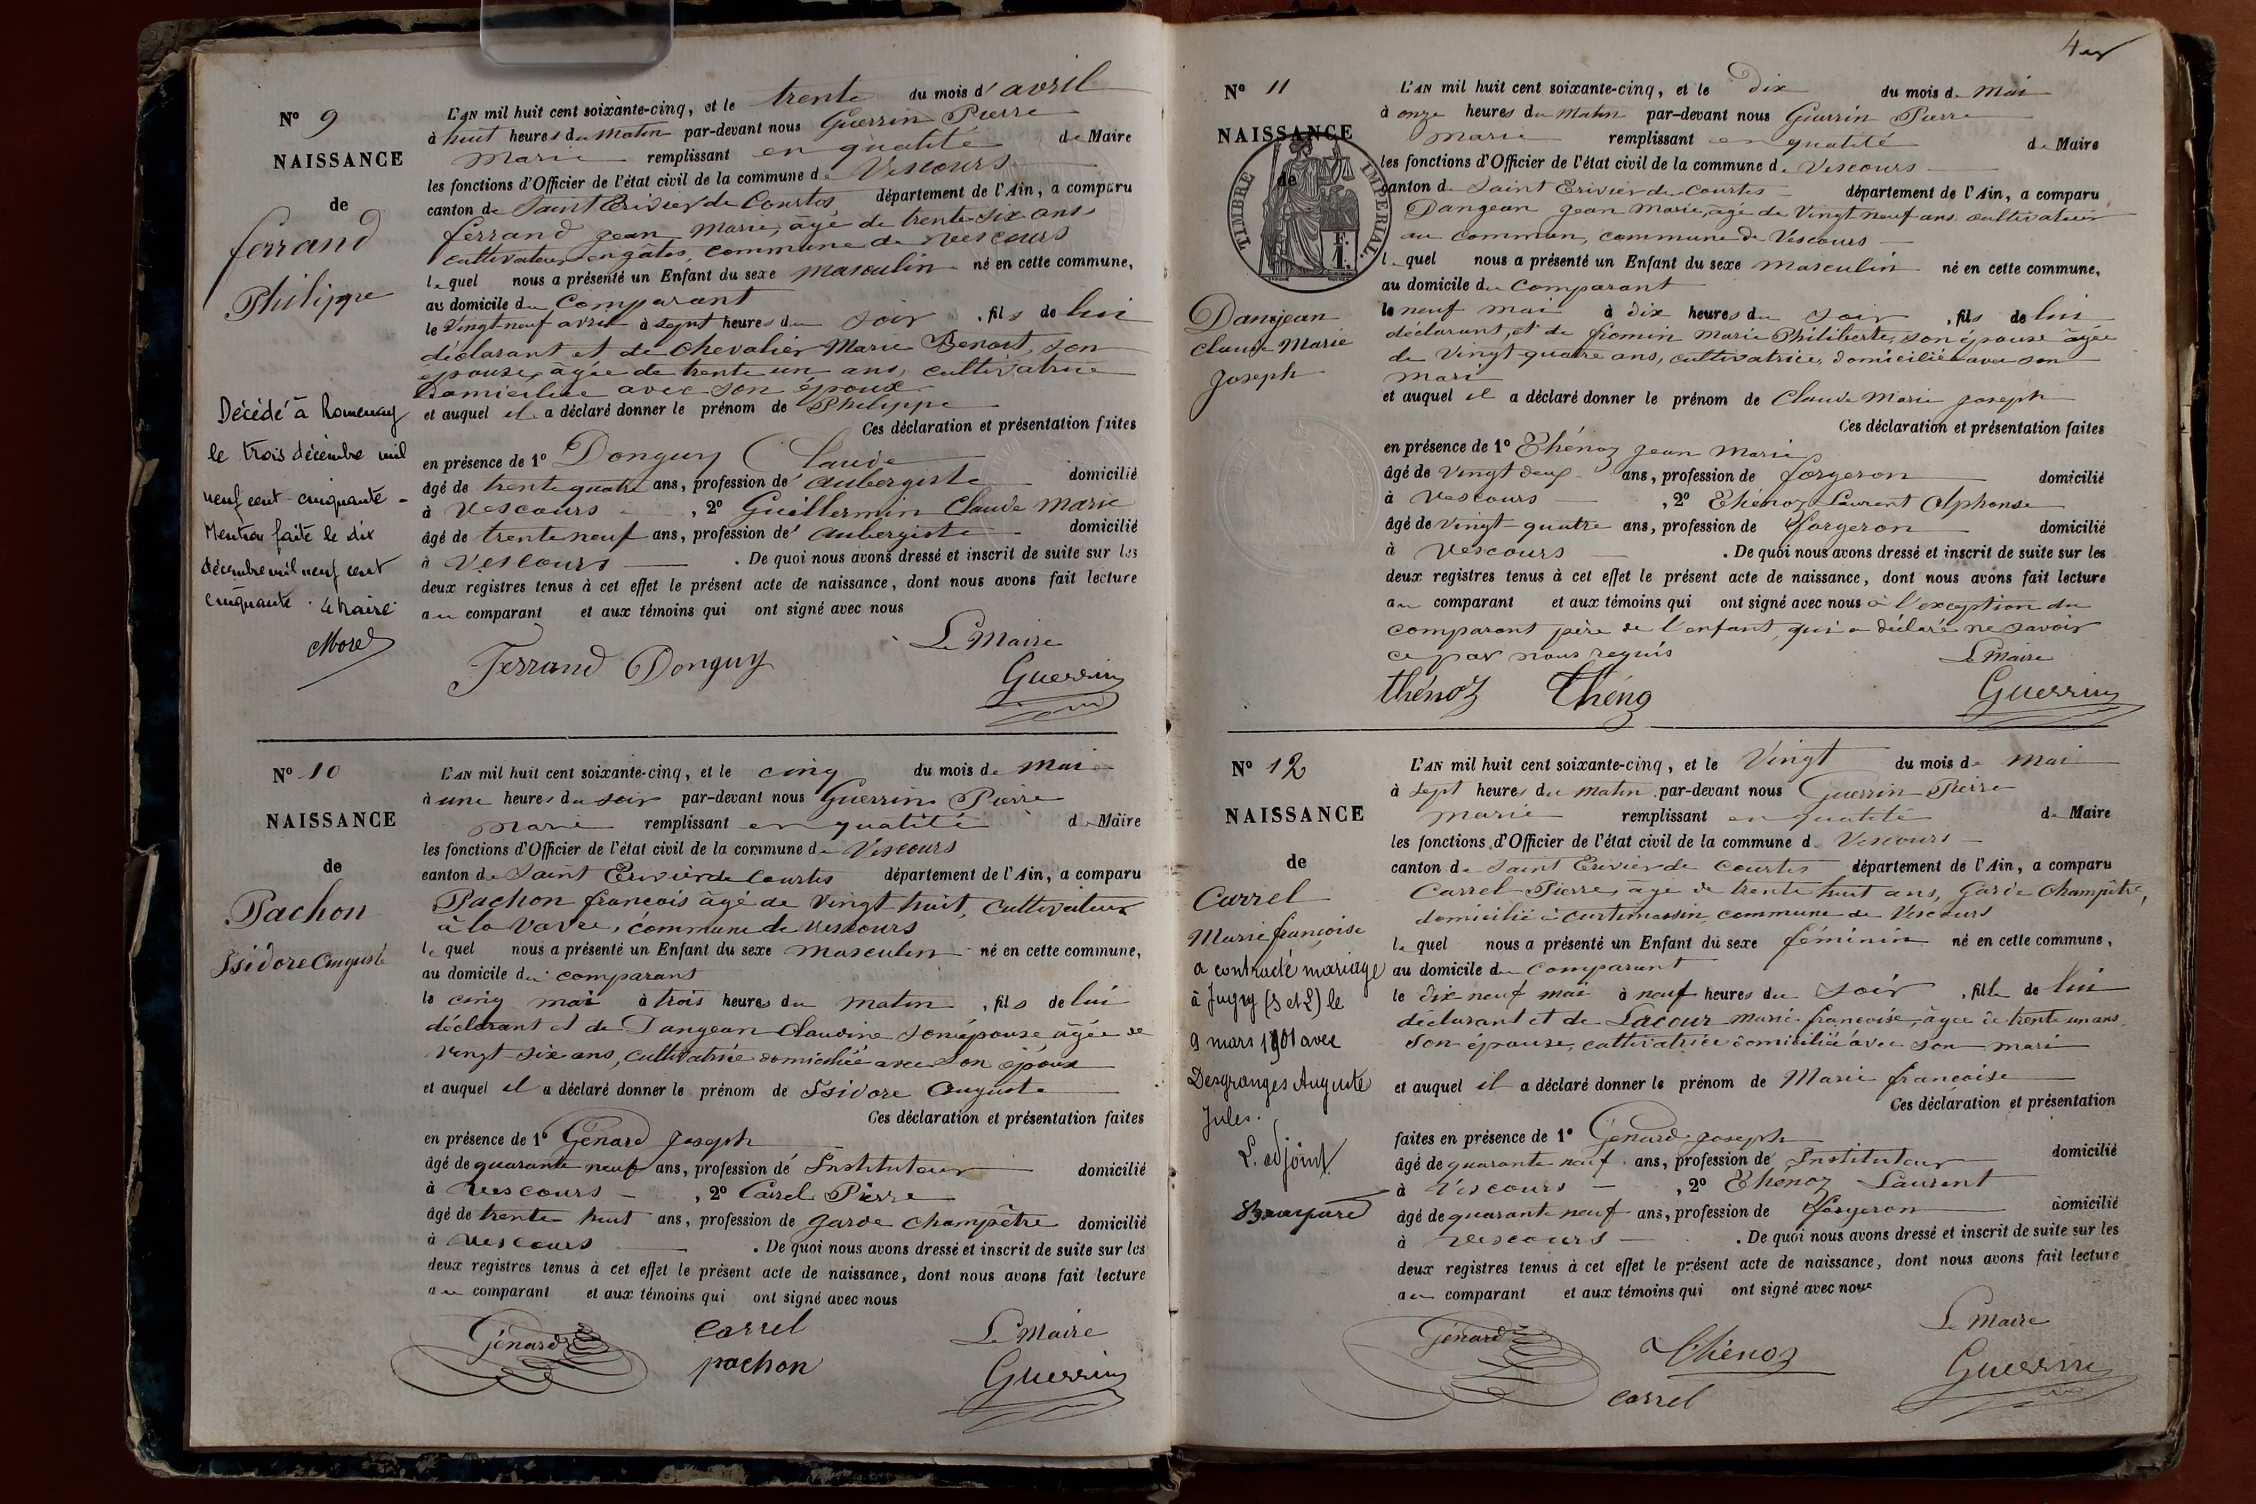 N° 9
NAISSANCE
de
ferrand
Philippe
Décédé à Romenay
le trois décembre mil
neuf cent cinquante -
Mention faite le dix
décembre mil neuf cent
cinquante . le maire
Morel
L'AN mil huit cent soixante-cinq, et le trente du mois d'avril
à huit heures du matin par-devant nous Guerrin Pierre
Marie remplissant en qualité de Maire
les fonctions d'Officier de l'état civil de la commune de Vescours
canton de Saint Erivier de Courtes département de l'Ain, a comparu
ferrand jean Marie, âgé de trente six ans
cultivateur en gâtes, commune de Vescours
lequel nous a présenté un Enfant du sexe masculin né en cette commune,
au domicile du comparant
le vingt neuf avril à sept heures du soir , fils de lui
déclarant et de Chevalier Marie Benoit, son
épouse, âgée de trente un ans, cultivatrice
domiciliée avec son époux
et auquel il a déclaré donner le prénom de Philippe
Ces déclaration et présentation faites
en présence de 1° Donguy Claude
âgé de trente quatre ans, profession de aubergiste domicilié
à Vescours , 2° Guillermin Claude Marie
âgé de trente neuf ans, profession de aubergiste domicilié
à Vescours . De quoi nous avons dressé et inscrit de suite sur les
deux registres tenus à cet effet le présent acte de naissance, dont nous avons fait lecture
au comparant et aux témoins qui ont signé avec nous
Le Maire
Ferrand Donguy Guerrin
N° 10
NAISSANCE
de
Pachon
Isidore Auguste
L'AN mil huit cent soixante-cinq, et le cinq du mois de Mai
à une heures du soir par-devant nous Guerrin Pierre
Marie remplissant en qualité de Maire
les fonctions d'Officier de l'état civil de la commune de Vescours
canton de Saint Erivier de Courtes département de l'Ain, a comparu
Pachon françois âgé de vingt huit, cultivateur
à la Vavre, commune de Vescours
lequel nous a présenté un Enfant du sexe masculin né en cette commune,
au domicile du comparant
le cinq mai à trois heures du matin , fils de lui
déclarant et de Dangean Claudine son épouse âgée de
vingt-six ans, cultivatrice domiciliée avec son époux
et auquel il a déclaré donner le prénom de Isidore Auguste
Ces déclaration et présentation faites
en présence de 1° Génard Joseph
âgé de quarante neuf ans, profession de Instituteur domicilié
à Vescours , 2° Carrel Pierre
âgé de trente huit ans, profession de garde champêtre domicilié
à Vescours . De quoi nous avons dressé et inscrit de suite sur les
deux registres tenus à cet effet le présent acte de naissance, dont nous avons fait lecture
au comparant et aux témoins qui ont signé avec nous
Génard carrel Le Maire
pachon Guerrin
N° 11
NAISSANCE
de
TIMBRE IMPERIAL
Danjean
Claude Marie
Joseph
L'AN mil huit cent soixante-cinq, et le Dix du mois de Mai
à onze heures du matin par-devant nous Guerrin Pierre
Marie remplissant en qualité de Maire
les fonctions d'Officier de l'état civil de la commune de Vescours
canton de Saint Erivier de Courtes département de l'Ain, a comparu
Dangean Jean Marie, âgé de vingt neuf ans cultivateur
au commun, commune de Vescours
lequel nous a présenté un Enfant du sexe masculin né en cette commune,
au domicile du comparant
le neuf mai à dix heures du soir , fils de lui
déclarant, et de fromin Marie Philiberte, son épouse âgée
de vingt-quatre ans, cultivatrice, domiciliée avec son
mari
et auquel il a déclaré donner le prénom de Claude Marie Joseph
Ces déclaration et présentation faites
en présence de 1° Thénoz Jean Marie
âgé de vingt deux ans, profession de forgeron domicilié
à Vescours , 2° Thénoz Laurent Alphonse
âgé de vingt-quatre ans, profession de forgeron domicilié
à Vescours . De quoi nous avons dressé et inscrit de suite sur les
deux registres tenus à cet effet le présent acte de naissance, dont nous avons fait lecture
au comparant et aux témoins qui ont signé avec nous à l'exception du
comparant père de l'enfant, qui a déclaré ne savoir
ce par nous requis
Le Maire
thénoz Thénoz Guerrin
N° 12
NAISSANCE
de
Carrel
Marie françoise
a contracté mariage
à Jugy (S et L) le
9 mars 1901 avec
Desgranges Auguste
Jules.
L'adjoint
L'AN mil huit cent soixante-cinq, et le Vingt du mois de Mai
à sept heures du matin par-devant nous Guerrin Pierre
Marie remplissant en qualité de Maire
les fonctions d'Officier de l'état civil de la commune de Vescours
canton de Saint Erivier de Courtes département de l'Ain, a comparu
Carrel Pierre, âgé de trente huit ans, Garde Champêtre,
domicilié à curtimassin, commune de Vescours
lequel nous a présenté un Enfant du sexe féminin né en cette commune,
au domicile du comparant
le dix neuf mai à neuf heures du soir , fille de lui
déclarant et de Lacour Marie françoise, âgée de trente un ans
son épouse, cultivatrice domiciliée avec son mari
et auquel il a déclaré donner le prénom de Marie françoise
Ces déclaration et présentation
faites en présence de 1° Génard Joseph
âgé de quarante neuf ans, profession de Instituteur domicilié
à Vescours , 2° Thénoz Laurent
âgé de quarante neuf ans, profession de forgeron domicilié
à Vescours . De quoi nous avons dressé et inscrit de suite sur les
deux registres tenus à cet effet le présent acte de naissance, dont nous avons fait lecture
au comparant et aux témoins qui ont signé avec nous
Le Maire
Génard Thénoz Guerrin
carrel